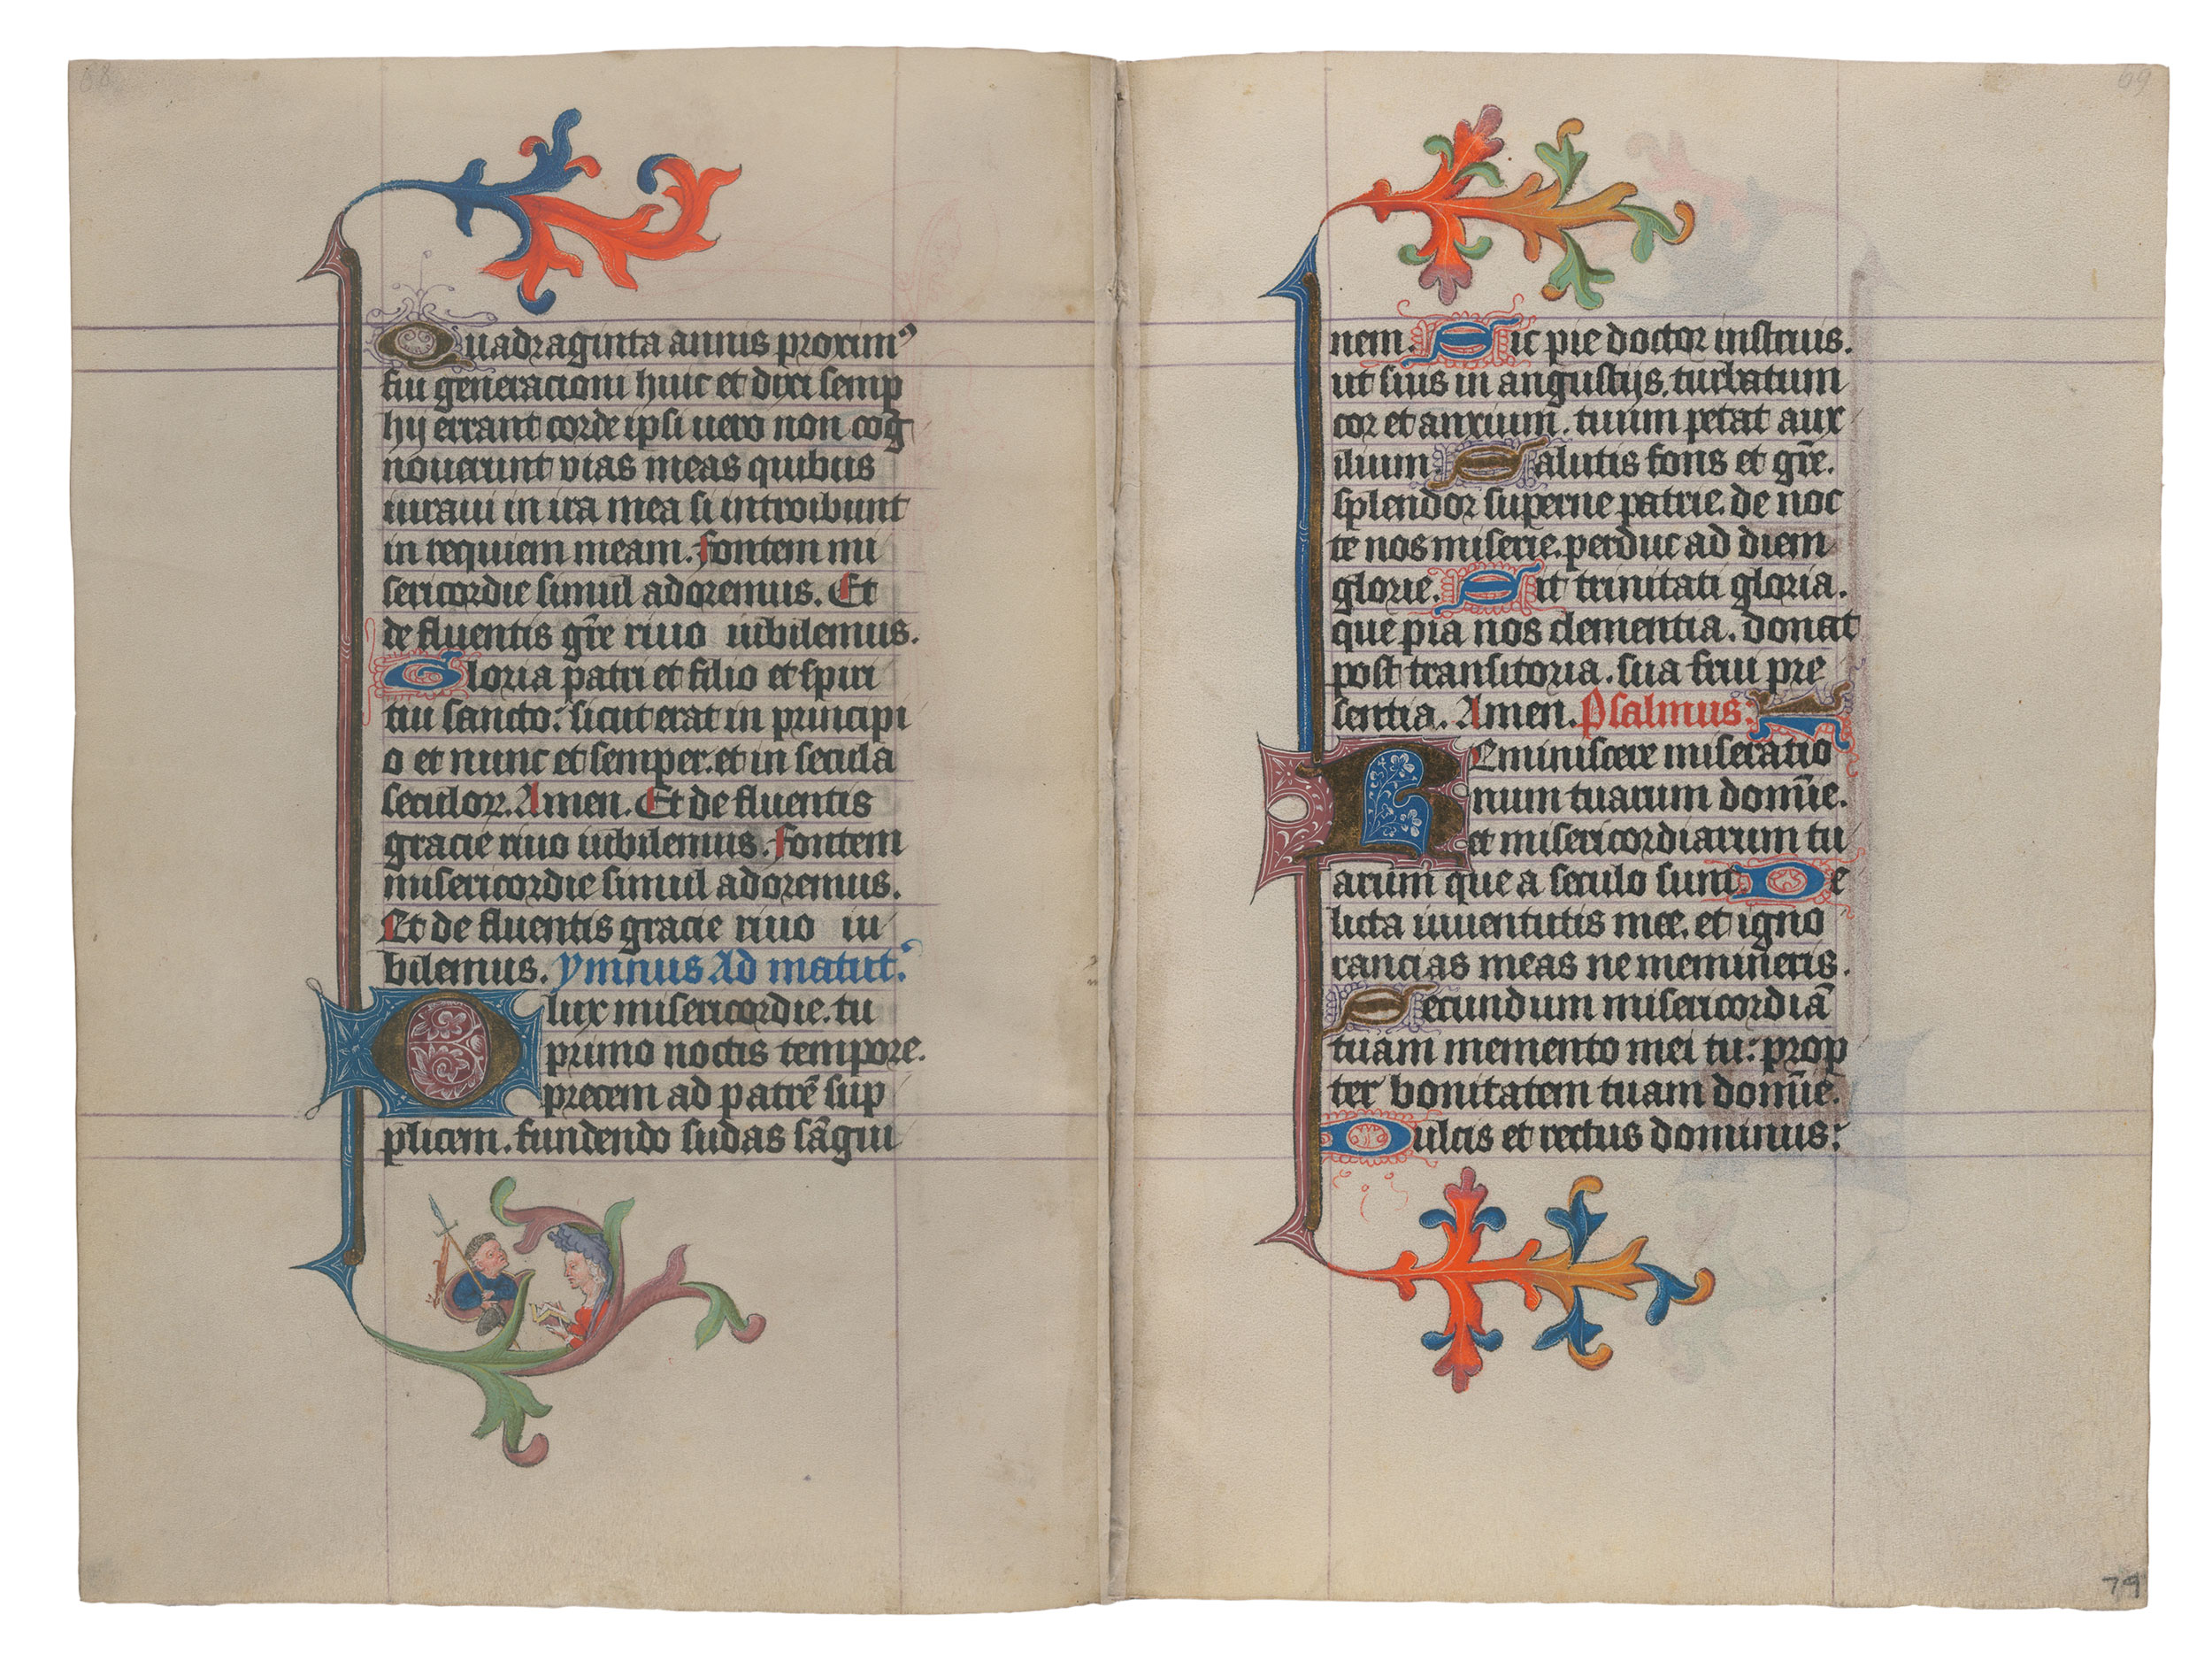 68
Quadraginta annis proximꝰ
fui generacioni huic et dixi semp
hij errant corde ipsi uero non cog
nouerunt vias meas quibus
iuraui in ira mea si introibunt
in requiem meam. fontem mi
sericordie simul adoremus. Et
de fluentis gr̄e riuo iubilemus.
Gloria patri et filio et spiri
tui sancto: sicut erat in principi
o et nunc et semper. et in secula
seculoꝝ. Amen. Et de fluentis
gracie riuo iubilemus. fontem
misericordie simul adoremus.
Et de fluentis gracie riuo iu
bilemus. ymnus Ad matut.
O lux misericordie. tu
primo noctis tempore.
precem ad patrē sup
plicem. fundendo sudas sāgui
69
nem. Sic pie doctor instruis.
ut suis in angustijs. turbatum
cor et anxium. tuum petat aux
ilium. Salutis fons et gr̄e.
splendor superne patrie. de noc
te nos miserie. perduc ad diem
glorie. Sit trinitati gloria.
que pia nos clementia. donat
post transitoria. sua frui pre
sentia. Amen. Psalmus:
Reminiscere miseratio
num tuarum domīe.
et misericordiarum tu
arum que a seculo sunt De
licta iuuentutis mee. et igno
rancias meas ne memineris.
Secundum misericordiā
tuam memento mei tu: prop
ter bonitatem tuam domīe.
Dulcis et rectus dominus:
79